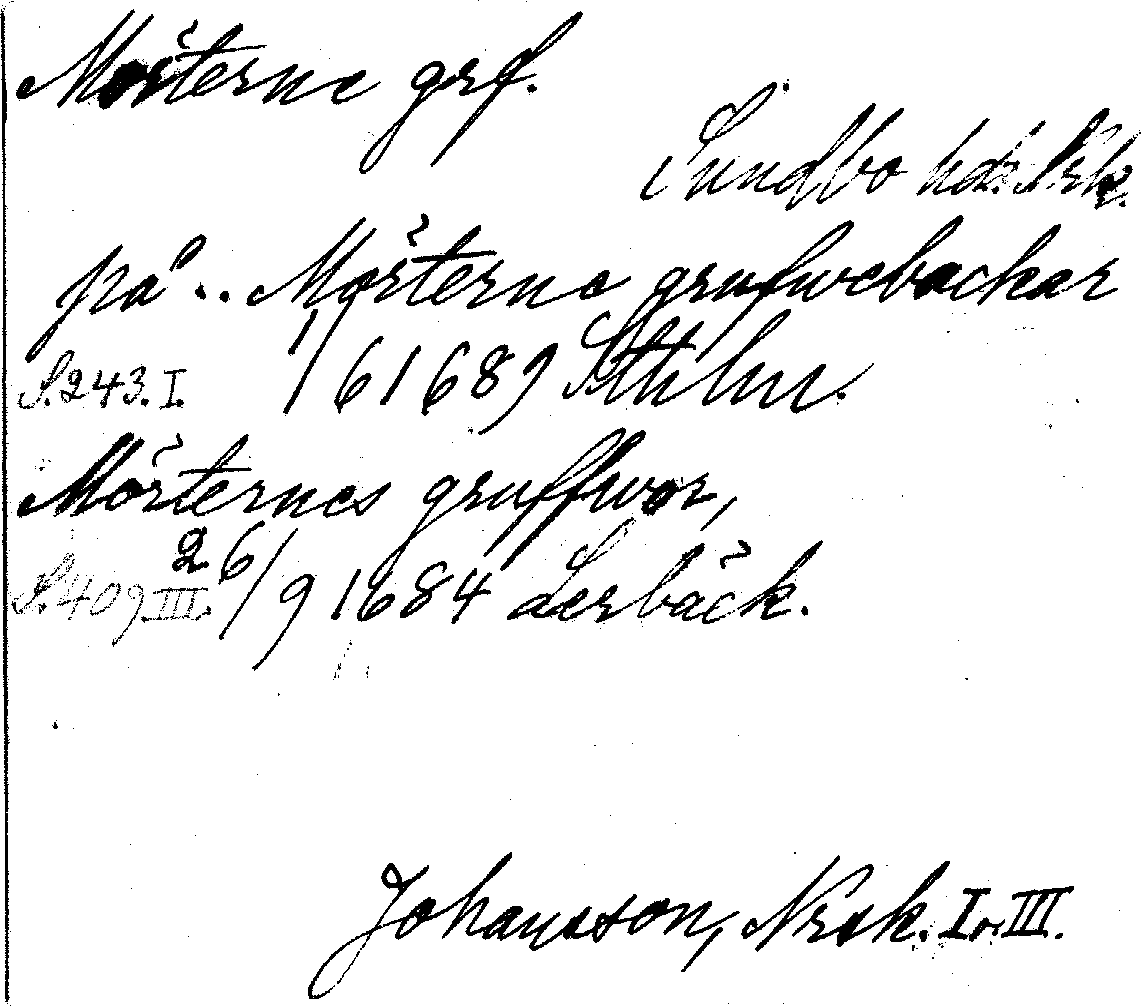 Mörterne grf.
Sundbo hd. Nrk.
på .. Mörterne grufwebackar
S. 243. I. 1/6 1689 Sthlm.
Mörternes gruffwor,
S. 409 III. 26/9 1684 Lerbäck.
Johansson, Nrsk. I o. III.